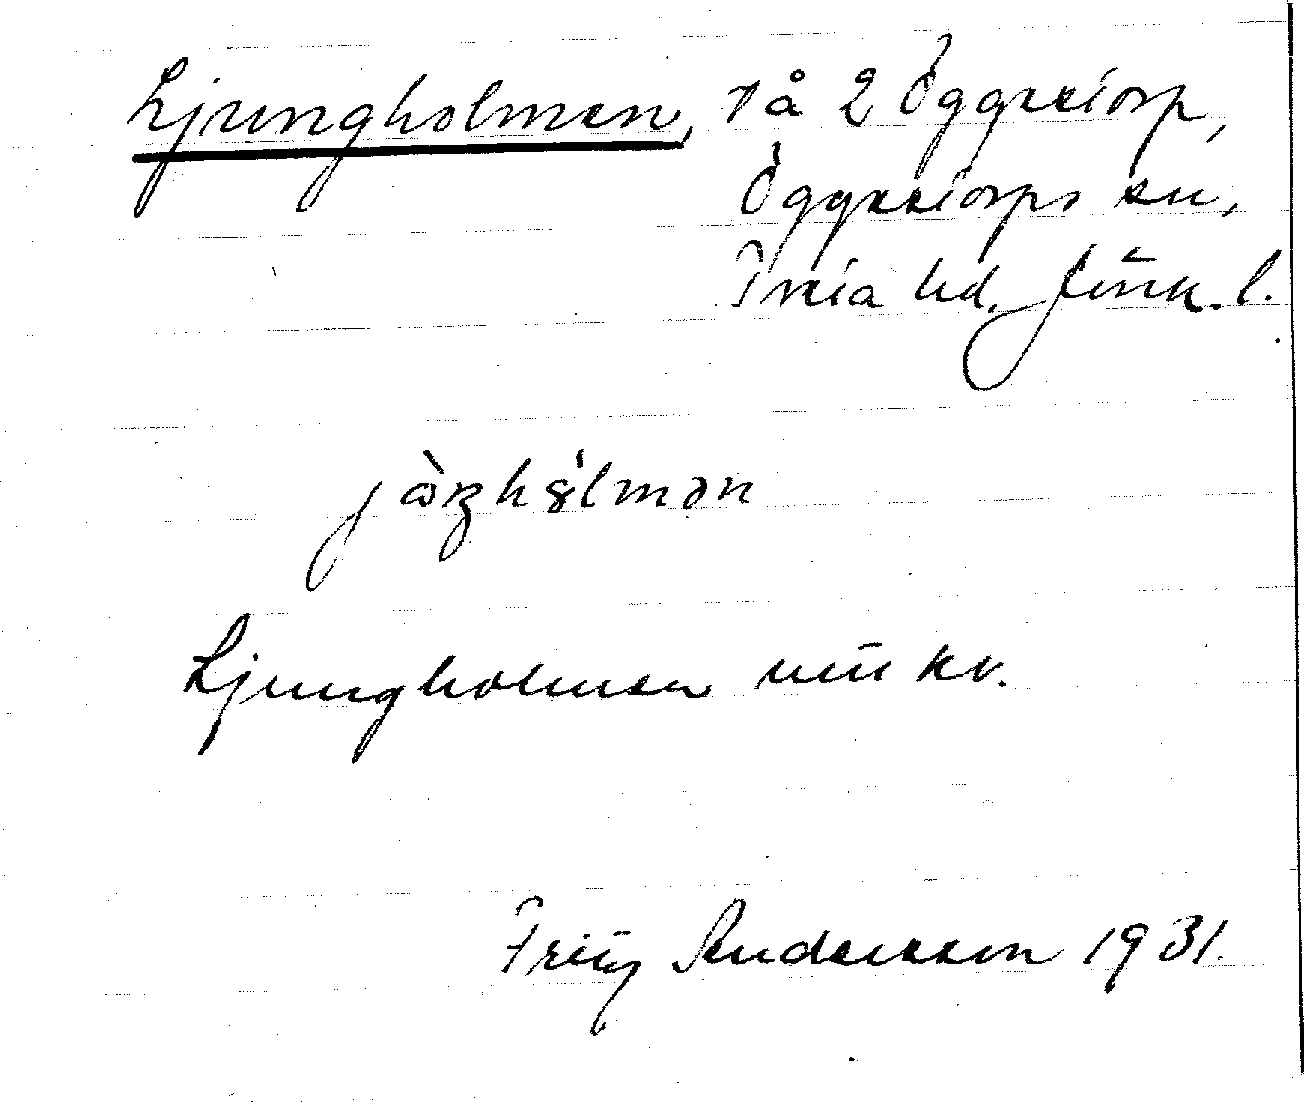 Ljungholmen, rå 2 Öggestorp,
Öggestorps sn,
Tveta hd, Jönk. l.
Ljungholmen mtk kv.
Fritz Andersson 1931.